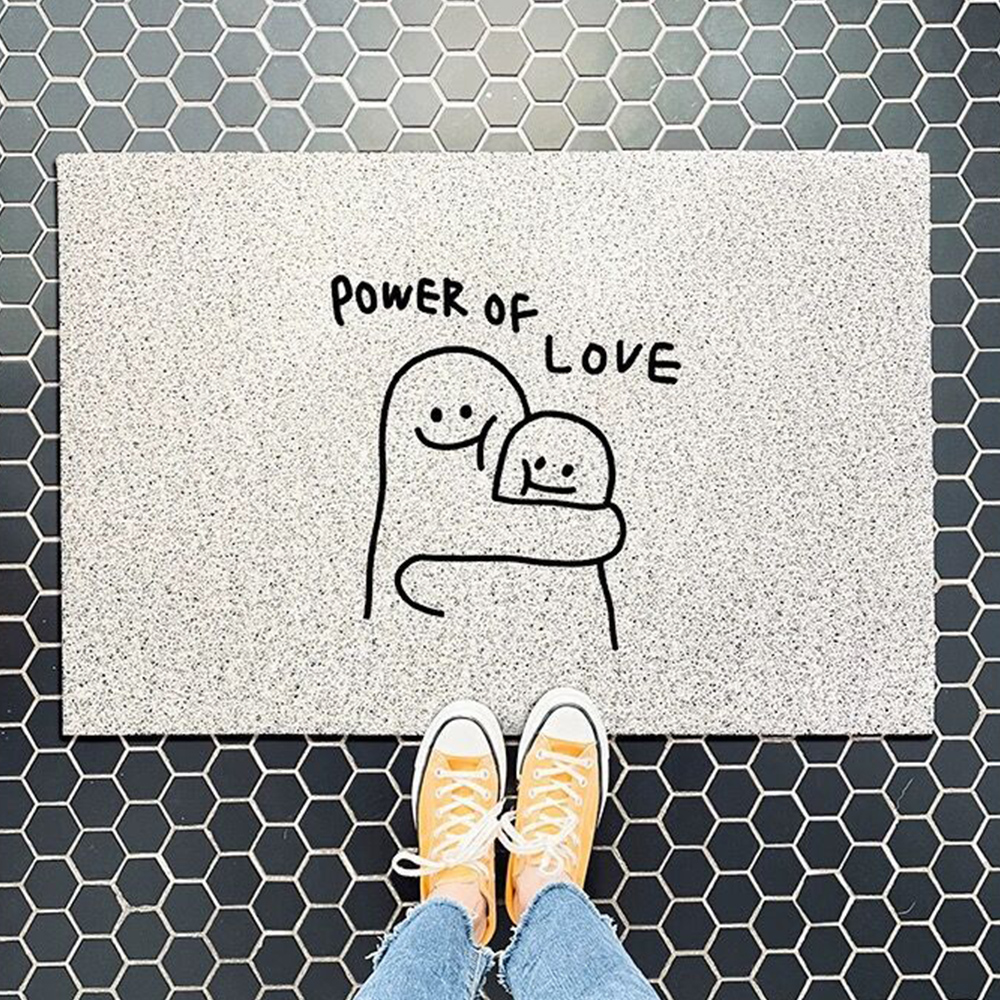 POWER OF
LOVE